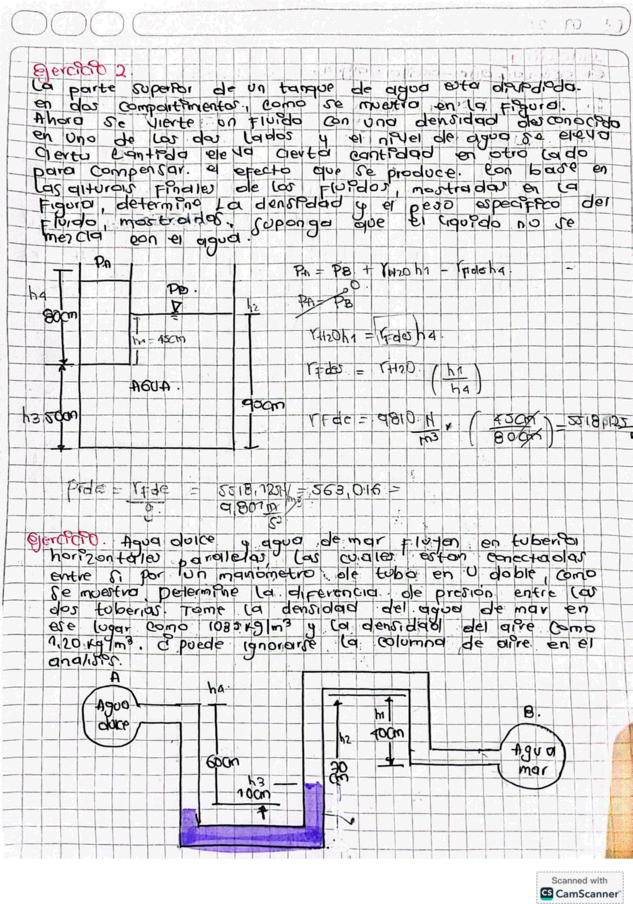 Ejercicio 2.
La parte superior de un tanque de agua esta dividida.
en dos compartimentos, como se muestra en la figura.
Ahora se vierte un fluido con una densidad desconocido
en uno de los dos lados y el nivel de agua se eleva
cierta cantida eleva cierta cantidad en otro lado
para compensar. el efecto que se produce. Con base en
Las alturas finales de los fluidos, mostradas en la
Figura, determine la densidad y el peso especifico del
Fluido, mostradas. Suponga que el liquido no se
mezcla con el agua.
PA
PB.
h4
80cm
h1 = 45cm
h2
AGUA.
90cm
h3.50cm
PA = PB + γH2O h1 - γfdes h4.
PA = PB 0
γH2O h1 = γfdes h4.
γfdes = γH2O. (h1/h4)
γfde = 9810 N/m3 * (45cm/80cm) = 5518,125
ρfde = γfde/g = 5518,125N/m3 / 9,807 m/s2 = 563,016 =
Ejercicio. Agua dulce y agua de mar fluyen en tuberia
horizontales paralelas, las cuales estan conectadas
entre si por un manómetro de tubo en U doble, como
se muestra. Determine la diferencia de presión entre las
dos tuberias. Tome la densidad del agua de mar en
ese lugar como 1035 kg/m3 y la densidad del aire como
1.20 kg/m3. ¿puede ignorarse la columna de aire en el
analisis.
A
Agua
dulce
h4.
60cm
h3
10cm
h2
70
cm
h1
40cm
B.
Agua
mar
Scanned with
CS CamScanner